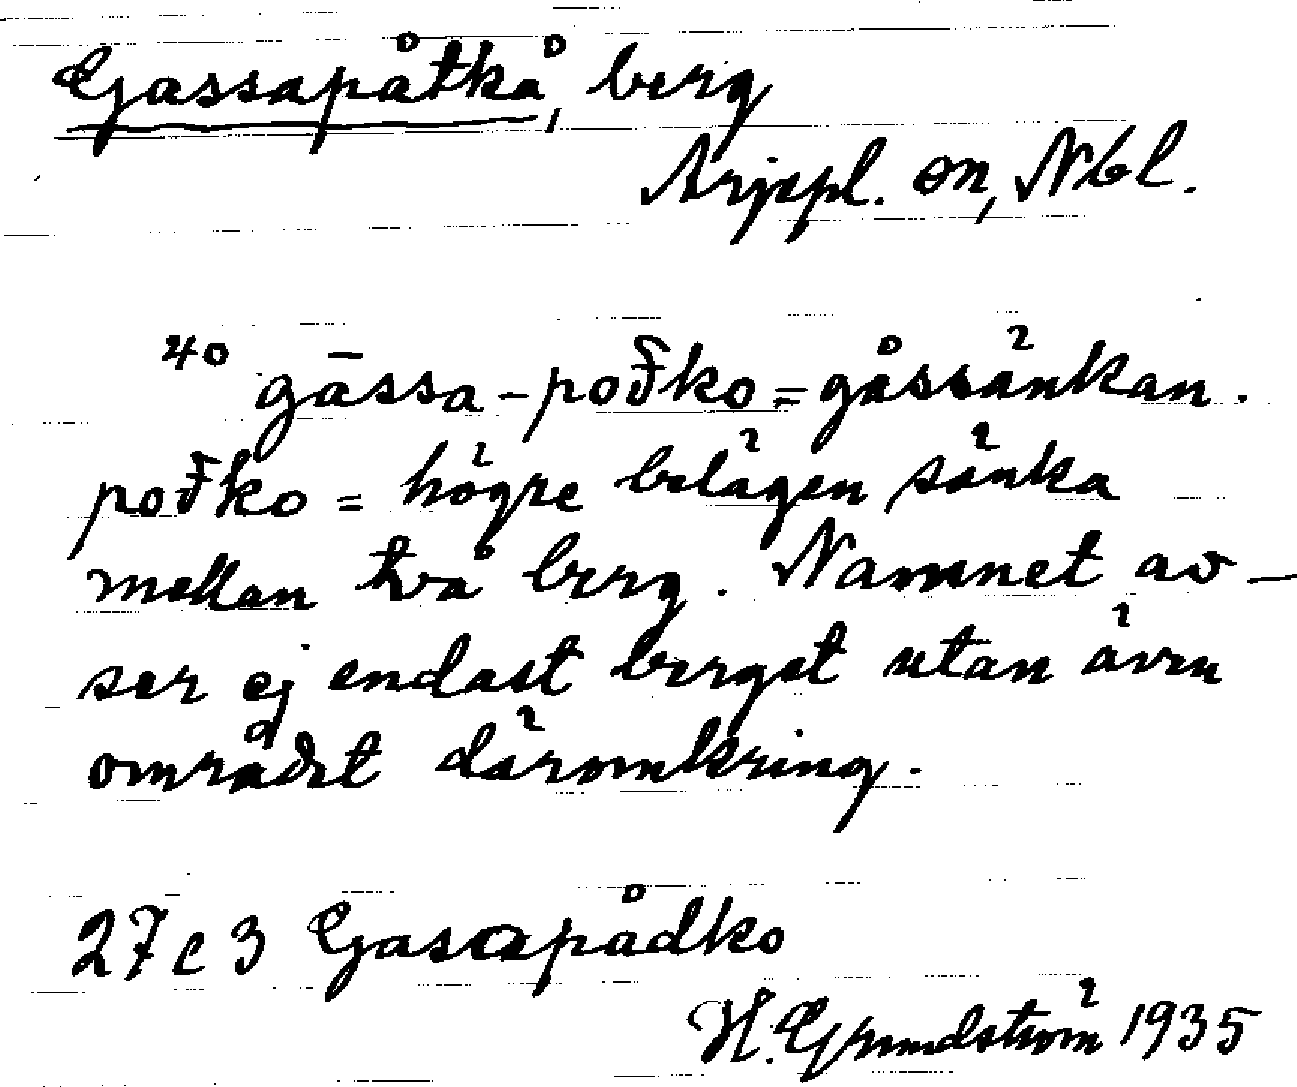 Gassapåtkå, berg
Arjepl. sn, Nbl.
40 gāssa-pođko = gåssänkan.
pođko = högre belägen sänka
mellan två berg. Namnet av-
ser ej endast berget utan även
området däromkring.
27 c 3 Gasapådko
H. Grundström 1935